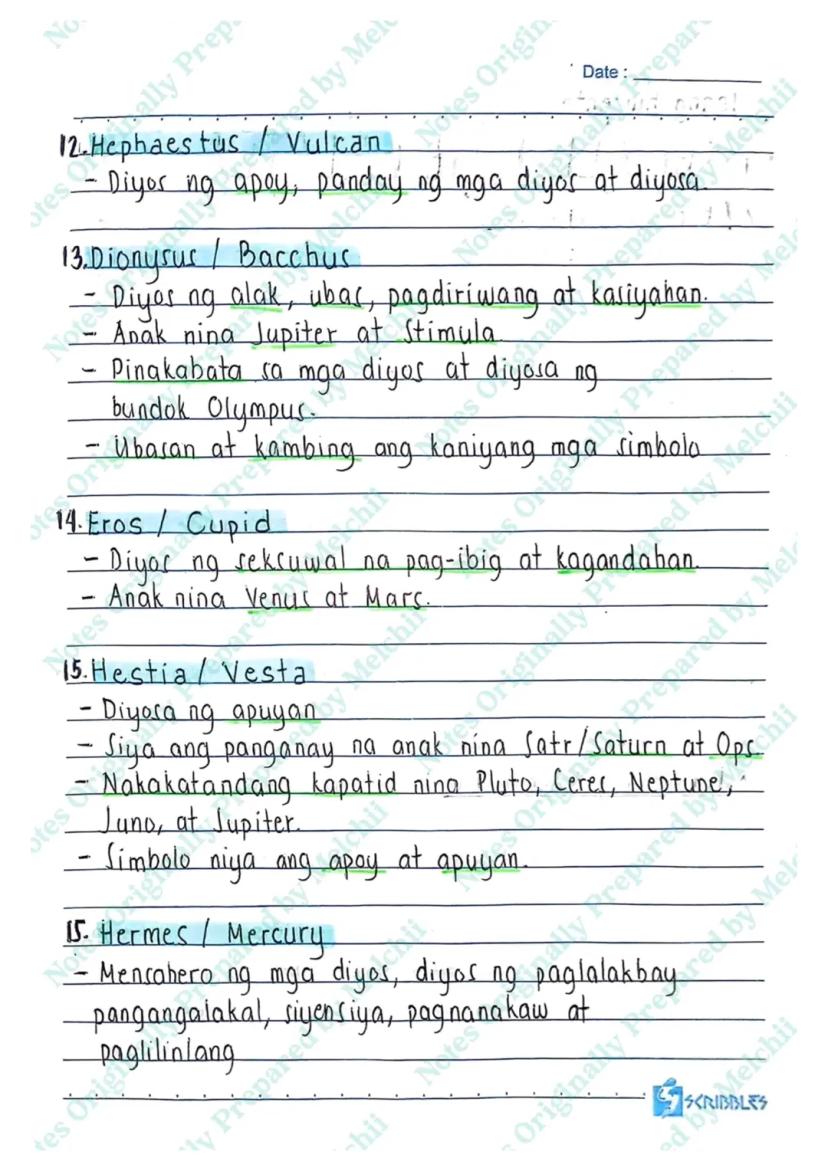 Date :
12. Hephaestus / Vulcan
- Diyos ng apoy, panday ng mga diyos at diyosa.
13. Dionysus / Bacchus
- Diyos ng alak, ubas, pagdiriwang at kasiyahan.
- Anak nina Jupiter at Stimula
- Pinakabata sa mga diyos at diyosa ng
bundok Olympus.
- Ubasan at kambing ang kaniyang mga simbolo
14. Eros / Cupid
- Diyos ng seksuwal na pag-ibig at kagandahan.
- Anak nina Venus at Mars.
15. Hestia / Vesta
- Diyosa ng apuyan
- Siya ang panganay na anak nina Satr/Saturn at Ops.
- Nakakatandang kapatid nina Pluto, Ceres, Neptune,
Juno, at Jupiter.
- Simbolo niya ang apoy at apuyan.
15. Hermes / Mercury
- Mensahero ng mga diyos, diyos ng paglalakbay
pangangalakal, siyensiya, pagnanakaw at
paglilinlang
SCRIBBLES
Notes Originally Prepared by Melchii